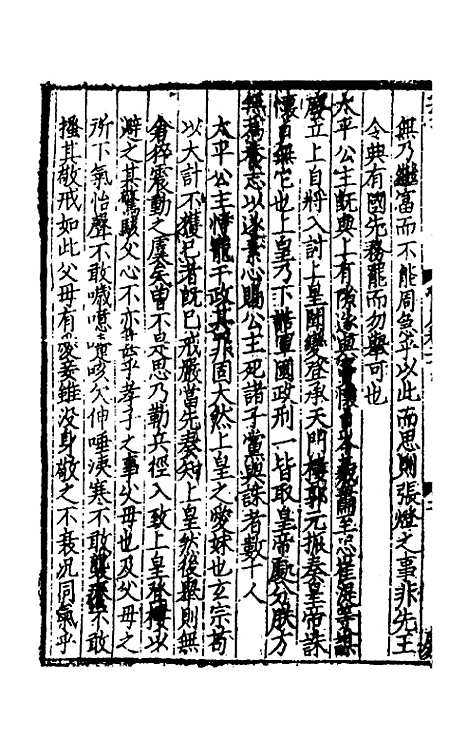 無乃繼富而不能周急乎以此而思則張燈之事非先王
令典有國先務罷而勿舉可也
太平公主既與上有隙遂與竇懷貞岑羲蕭至忠崔湜等謀
廢立上自將入討上皇聞變登承天門樓郭元振奏皇帝誅
懷貞無它也上皇乃下誥軍國政刑一皆取皇帝處分朕方
無為養志以遂素心賜公主死諸子黨與誅者數十人
太平公主恃寵干政其罪固大然上皇之愛妹也玄宗苟
以大計不獲已者既已戒嚴當先奏知上皇然後舉則無
倉猝震動之虞矣曾不是思乃勒兵徑入致上皇登樓以
避之其驚駭父心不亦甚乎孝子之事父母也及父母之
所下氣怡聲不敢噦噫嚏咳欠伸唾洟寒不敢襲癢不敢
搔其敬戒如此父母有愛妾雖沒身敬之不衰况同氣乎